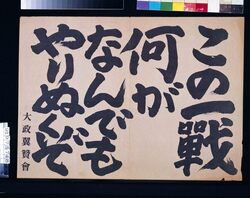 この一戰
何が
なんでも
やりぬくぞ
大政翼賛會